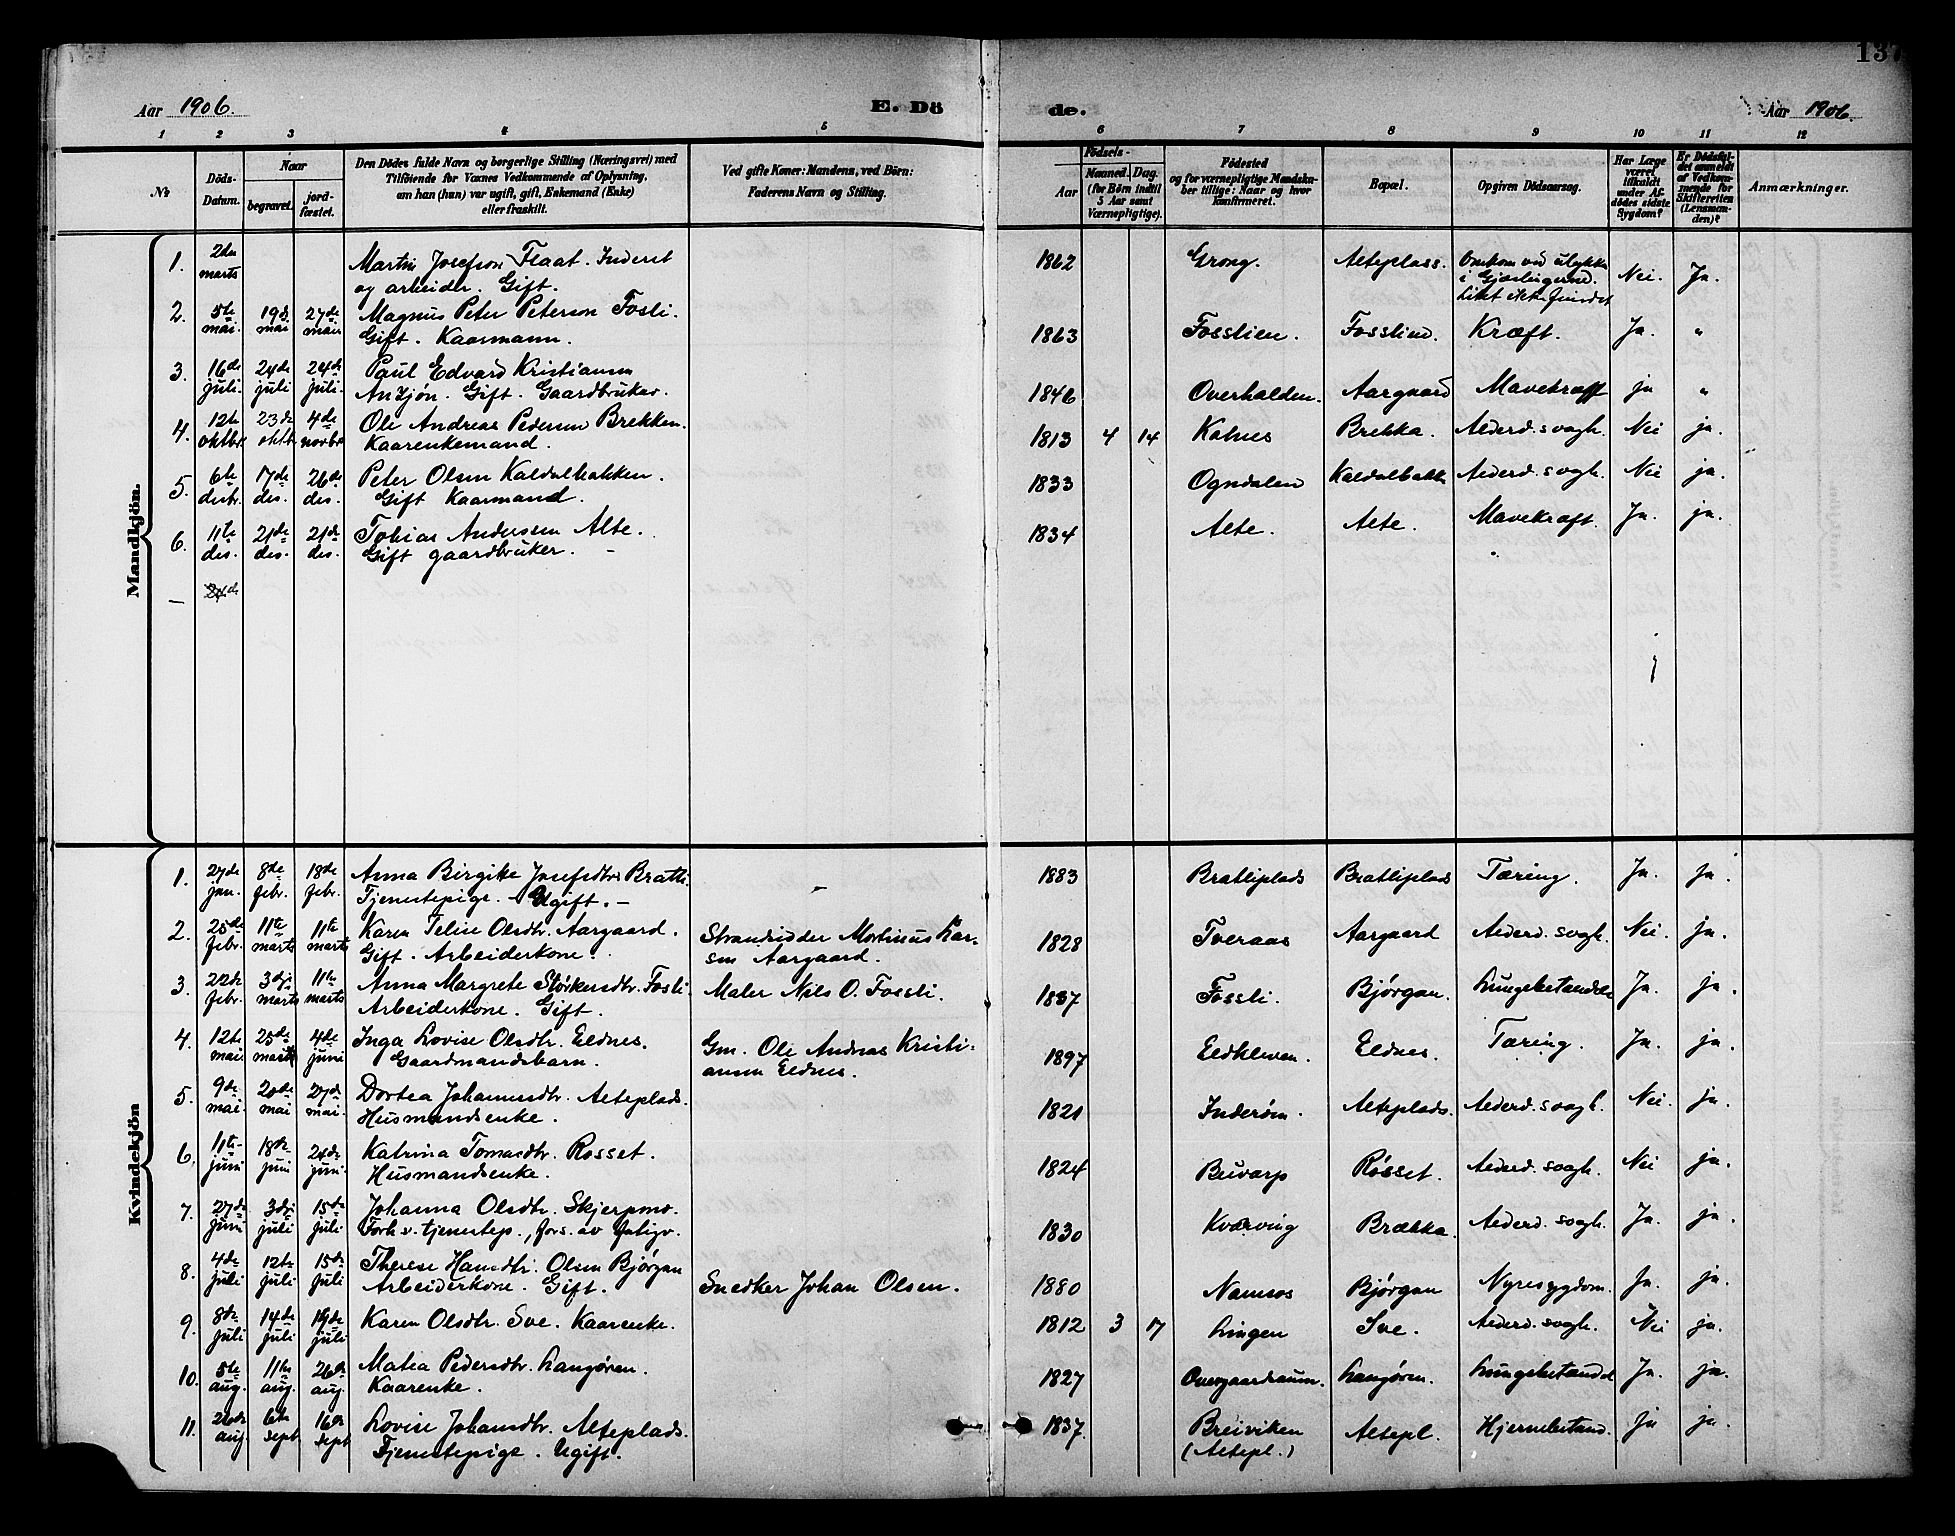 137
Aar 1906.
E. Dö
de.
Aar 1906.
1 2 3 4 5 6 7 8 9 10 11 12
№
Döds-
Datum.
Naar
begravet.
jord-
fæstet.
Den Dödes fulde Navn og borgerlige Stilling (Næringsvei) med
Tilföiende for Voxnes Vedkommende af Oplysning,
om han (hun) var ugift, gift, Enkemand (Enke)
eller fraskilt.
Ved gifte Koner: Mandens, ved Börn:
Faderens Navn og Stilling.
Födsels-
Aar
Maaned. Dag.
(for Börn indtil
5 Aar samt
Værnepligtige).
Födested
og for værnepligtige Mandska-
ber tillige: Naar og hvor
konfirmeret.
Bopæl.
Opgiven Dödsaarsag.
Har Læge
været
tilkaldt
under Af-
dödes sidste
Sygdom?
Er Dödsfal-
det anmeldt
af Vedkom-
mende for
Skifteretten
(Lensman-
den)?
Anmærkninger.
Mandkjön.
1. 2den marts Martin Josefson Flaat. Inderst
og arbeider. Gift. 1862 Grong. Alteplass. Omkom ved ulykke
i Gjæslingerne.
Liket ikke fundet Nei. Ja.
2. 5te mai. 19d mai 27de mai Magnus Peter Peterson Fosli.
Gift. Kaarmann. 1863 Fosslien. Fosslien. Kræft. Ja. "
3. 16de juli. 24de juli 24de juli. Paul Edvard Kristiansen
Anzjøn. Gift. Gaardbruker. 1846 Overhalden. Aargaard Mavekræft ja "
4. 12te oktbr. 23de oktb. 4de novbr. Ole Andreas Pedersen Brekken.
Kaarenkemand. 1813 4 14 Kolnes Brekka. Alderd. svagh. Nei ja.
5. 6te desbr. 17de des. 26de des. Peter Olsen Kaldalbakken.
Gift Kaarmand. 1833 Ogndalen Kaldalbakk Alderd. svagh. Nei ja.
6. 11te des. 21de des. 21de des. Tobias Andersen Alte.
Gift gaardbruker. 1834 Alte. Alte. Mavekræft. Ja. ja.
– 24de
Kvindekjön
1. 27de jan. 8de febr. 18de febr. Anna Birgitte Josefsdtr Bratli.
Tjenestepige. – Ugift. – – 1883 Bratliplads Bratliplads Tæring. Ja. ja.
2. 25de febr. 11te marts 11te marts Karen Teline Olsdtr. Aargaard.
Gift. Arbeiderkone. Strandsidder Mortinus Lar-
sen Aargaard. 1828 Tveraas Aargaard Alderd. svagh. Nei. ja.
3. 22de febr. 3dje marts 11te marts Anna Margrete Størkersdtr. Fosli.
Arbeiderkone. Gift. Maler Nils O. Fossli. 1837 Fossli. Bjørgan. Lungebetændelse Ja. ja.
4. 12te mai 25de mai 4de juni Inga Lovise Olsdtr. Eldnes.
Gaardmandsbarn. Gm. Ole Andreas Kristi-
ansen Eldnes. 1897 Eldkleven. Eldnes. Tæring. Ja. ja.
5. 9de mai. 20de mai 27de mai. Dortea Johannesdtr. Alteplads.
Husmandsenke. 1821 Inderøen. Alteplads. Alderd. svagh. Nei. ja.
6. 11te juni 18de juni 24de juni. Katrina Tomasdtr. Rosset.
Husmandsenke. 1824 Buvarp Røsset. Alderd. svagh. Nei ja.
7. 27de juni 3dje juli 15de juli Johanna Olsdtr. Skjerpmo.
Forh.v. tjenestep., fors. av fatigv. 1830 Kvarving Brækka. Alderd. svagh. Ja. ja.
8. 4de juli 12te juli 15de juli Therese Hansdtr. Olsen Bjørgan
Arbeiderkone. Gift. Snedker Johan Olsen. 1880 Namsos Bjørgan Nyresygdom. Ja. ja.
9. 8de juli 14de juli 19de juli Karen Olsdtr. Sve. Kaarenke. 1812 3 17 Lingen Sve. Alderd. svagh. Nei ja.
10. 5te aug. 11te aug. 26de aug. Matea Pedersdtr. Langøren.
Kaarenke. 1827 Overgaardsaum. Langøren. Lungebetændel Ja. ja.
11. 26de aug. 6te sept. 16de sept Lovise Johansdtr. Alteplads.
Tjenestepige. Ugift. 1837 Breiviken
(Altepl.) Altepl. Hjernebetænd. ja ja.